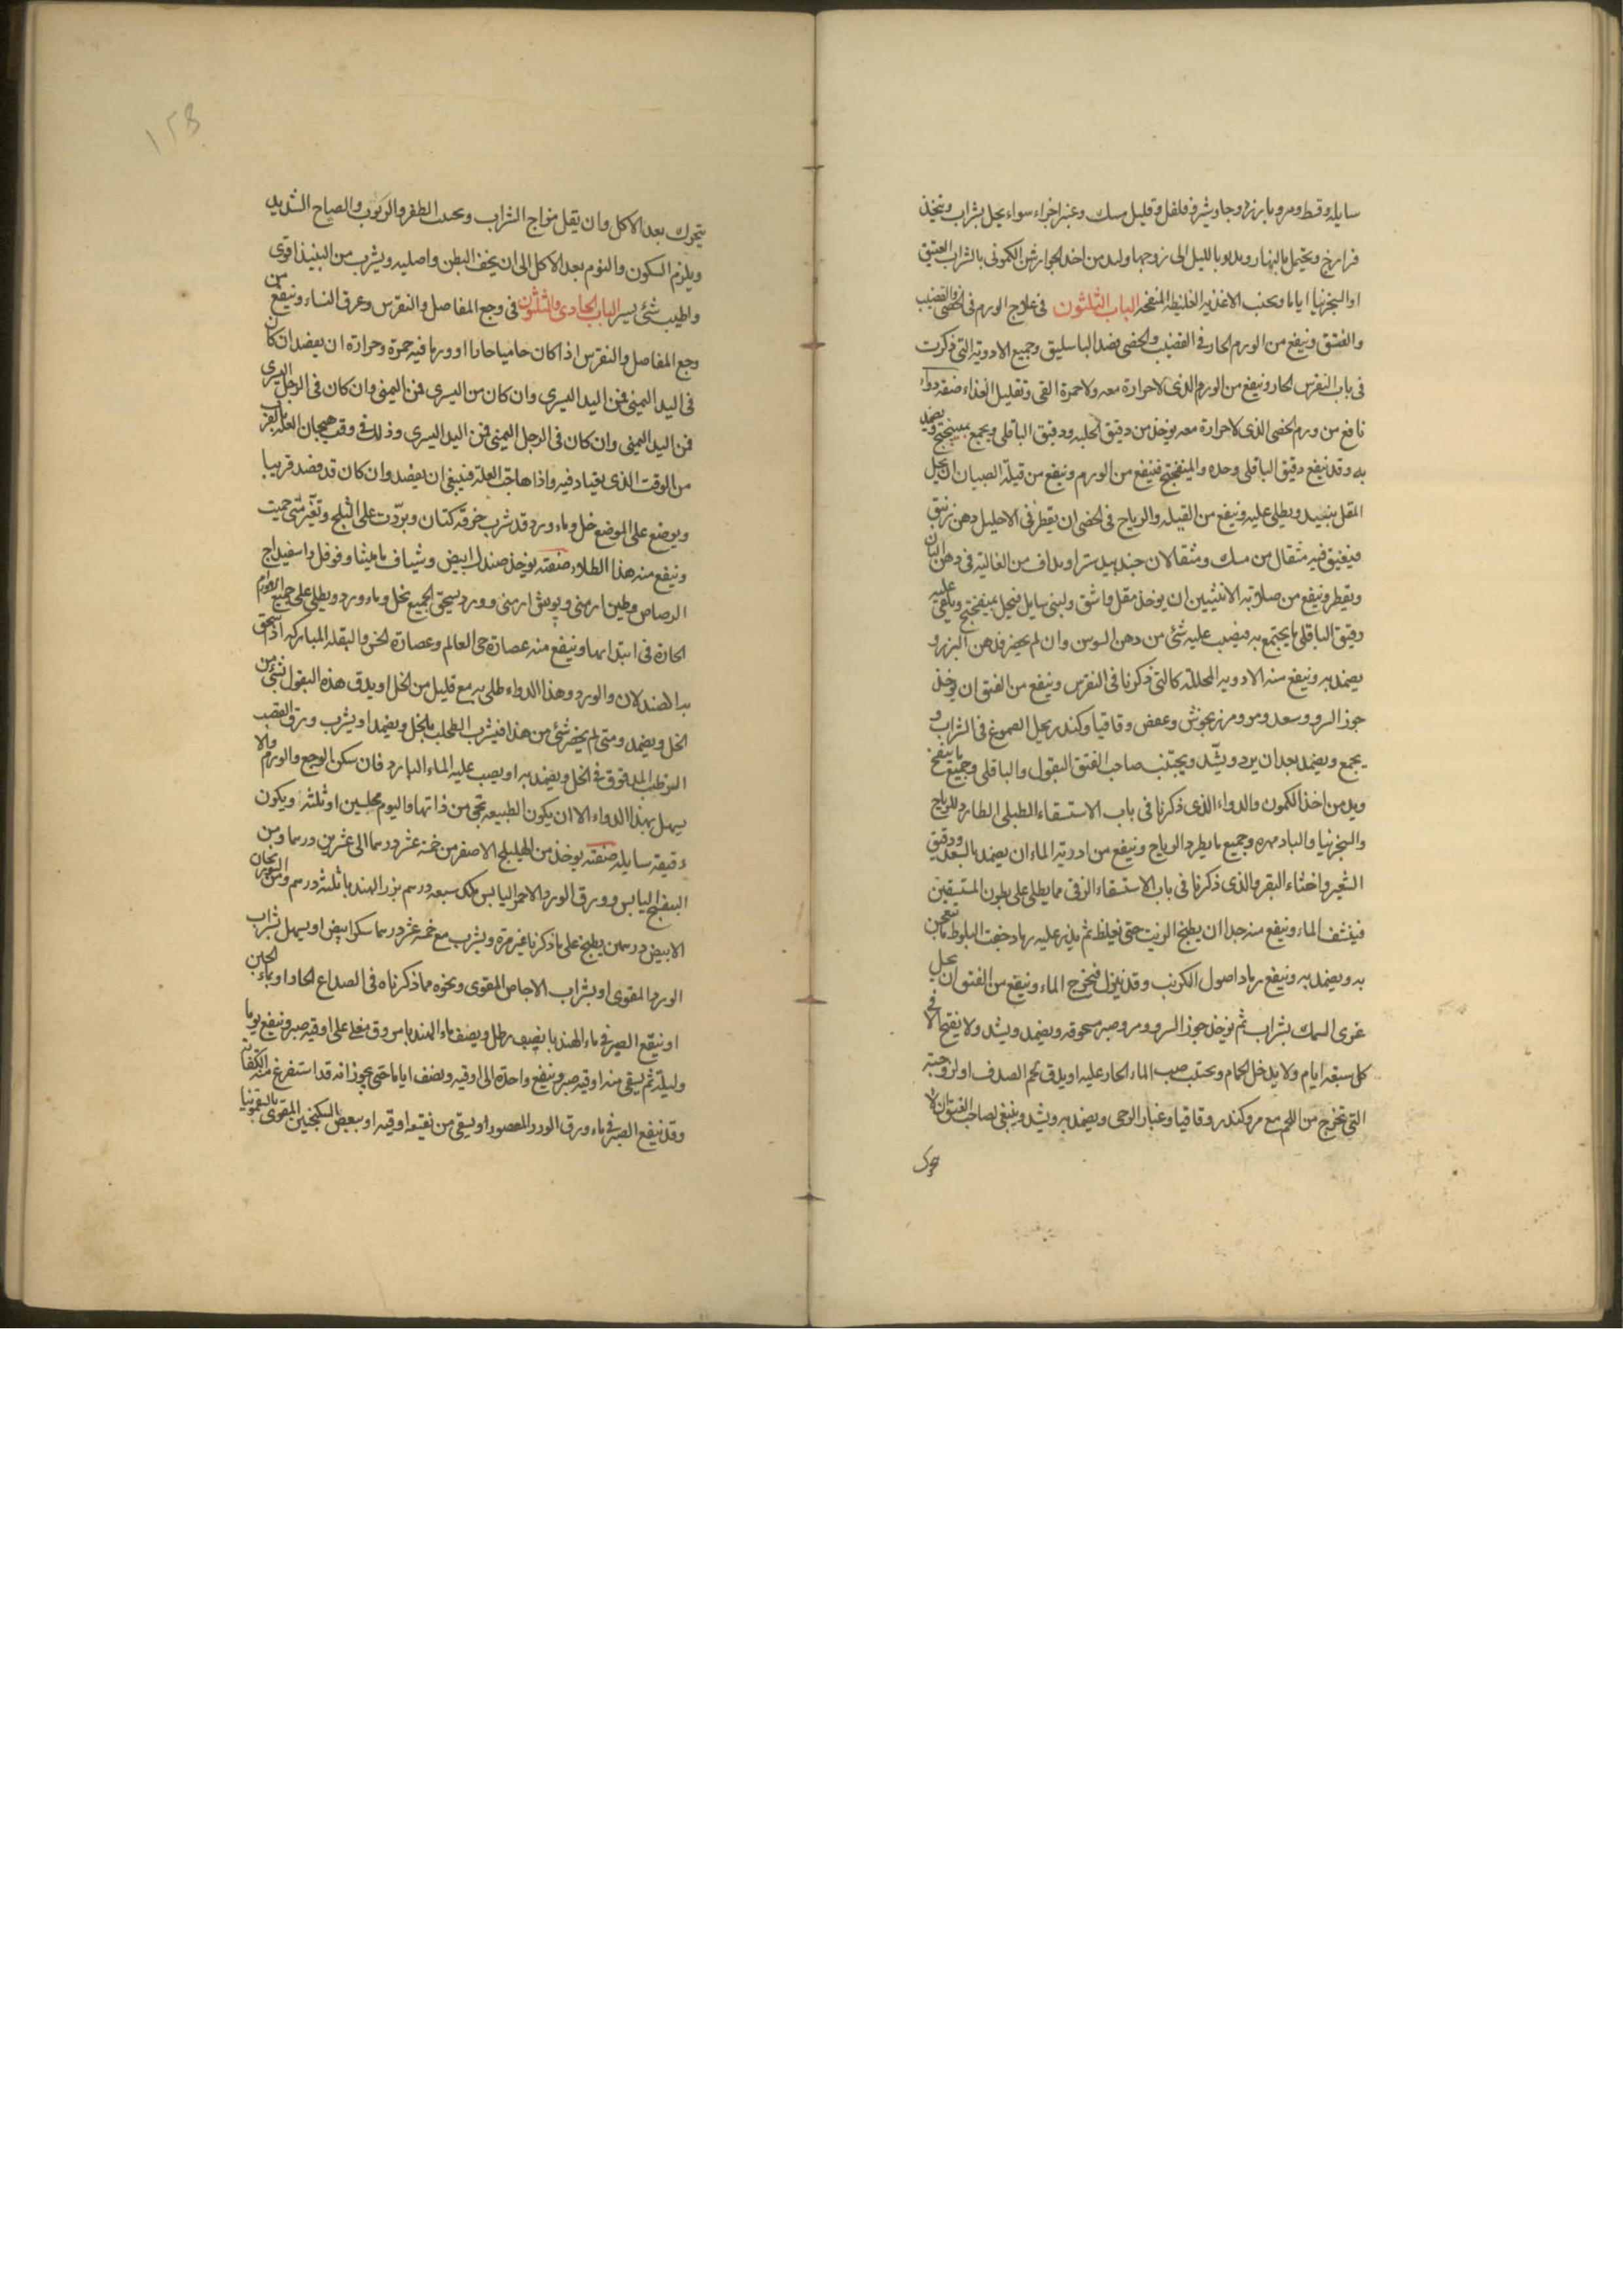 سايله وقسط ومر وبارزد وجاوشير وفلفل وقليل مسك وعنبر اجزاء سواء يحل بشراب ويتخذ
فرازج ويحتمل بالنهار ويدنو بالليل الى زوجها وليدمن اخذ الجوارشن الكمونى بالشراب العتيق
او السجزنيا اياما ويجتنب الاغذيه الغليظه المنفخه الباب الثلثون فى علاج الورم فى الخصى والقضيب
والفتق وينفع من الورم الحار فى القضيب والخصى فصد الباسليق وجميع الادويه التى ذكرت
فى باب النقرس الحار وينفع من الورم الذى لا حرارة معه ولا حمرة القى وتقليل الغذاء صفة دواء
نافع من ورم الخصى الذى لا حرارة معه يوخذ من دقيق الحلبه ودقيق الباقلى ويجمع بميبختج ويضمد
به وقد ينفع دقيق الباقلى وحده والميفختج فينفع من الورم وينفع من قيلة الصبيان ان يحل
المقل بنبيد ويطلى عليه وينفع من القيله والرياح فى الخصى ان يقطر فى الاحليل دهن زنبق
فيفتق فيه مثقال من مسك ومثقالان جندبيدستر او يداف من الغاليه فى دهن البان
ويقطر وينفع من صلابه الانثيين ان يوخذ مقل واشق ولبنى سايل فيحل بميفختج ويلقى عليه
دقيق الباقلى ما يجتمع به فيصب عليه شئ من دهن السوسن وان لم يحضر فدهن البزر و
يضمد به وينفع منه الادويه المحلله كالتى ذكرنا فى النقرس وينفع من الفتق ان يوخذ
جوز السرو وسعد ومر ومرزنجوش وعفص وقاقيا وكندر يحل الصموغ فى الشراب و
يجمع ويضمد بعد ان يرد ويشد ويجتنب صاحب الفتق البقول والباقلى وجميع ما ينفخ
ويدمن اخذ الكمون والدواء الذى ذكرنا فى باب الاستسقاء الطبلى الطارد للرياح
والسجزنيا والبادمهره وجميع ما يطرد الرياح وينفع من ادرية الماء ان يضمد بالسعد ودقيق
الشعير واخثاء البقر والذى ذكرنا فى باب الاستسقاء الزقى مما يطلى على بطون المستسقين
فينشف الماء وينفع منه جدا ان يطبخ الزيت حتى يغلظ ثم يذر عليه رماد خشب البلوط ما يعجن
به ويضمد به وينفع رماد اصول الكرنب وقد يبزل فيخرج الماء وينفع من الفتوق ان يحل
غرى السمك بشراب ثم يوخذ جوز السرو ومر وصبر مسحوقه ويضمد ويشد ولا يفتح الا فى
كل سبعه ايام ولا يدخل الحمام ويجتنب صب الماء الحار عليه او يدق لحم الصدف او لزوجته
التى تخرج من اللحم مع مر وكندر وقاقيا وغبار الرحى ويضمد به ويشد وينبغى لصاحب الفتق ان لا
يتحرك بعد الاكل وان يقل مزاج الشراب ويجتنب الطفر والركوب والصياح الشديد
ويلزم السكون والنوم بعد الاكل الى ان يخف البطن واصليه ويشرب من النبيذ اقوى
واطيب شئ يسير الباب الحادى والثلثون فى وجع المفاصل والنقرس وعرق النساء وينفع من
وجع المفاصل والنقرس اذا كان حاميا حارا او ورما فيه حمرة وحرارة ان يفصد ان كان
فى اليد اليمنى فمن اليد اليسرى وان كان من اليسرى فمن اليمنى وان كان فى الرجل اليسرى
فمن اليد اليمنى وان كان فى الرجل اليمنى فمن اليد اليسرى وذلك فى وقت هيجان العله بالقرب
من الوقت الذى يعتاد فيه واذا هاجت العله فينبغى ان يفصد وان كان قد فصد قريبا
ويوضع على الموضع خل وماء ورد قد شرب خرقة كتان وبردت على الثلج وتغير متى حميت
وينفع منه هذا الطلاء صنعته يوخذ صندل ابيض وشياف ماميثا وفوفل واسفيداج
الرصاص وطين ارمنى وبوش ارمنى وورد يسحق الجميع بخل وماء ورد ويطلى على جميع الاورام
الحارة فى ابتدايها وينفع منه عصارة حى العالم وعصارة الخس والبقله المباركه اذا سحق
به الصندلان والورد وهذا الدواء طلى به مع قليل من الخل او يدق هذه البقول بشئ من
الخل ويضمد ومتى لم يحضر شئ من هذا فيشرب الطحلب بالخل ويضمد او يشرب ورق القصب
الرطب المدقوق فى الخل ويضمد به او يصب عليه الماء البارد فان سكن الوجع والورم والا
يسهل بهذا الدواء الا ان يكون الطبيعه تجى من ذاتها فى اليوم مجلسين او ثلثه ويكون
رقيقه سايله صنعته يوخذ من الهليلج الاصفر من خمسة عشر درسما الى عشرين درسما ومن
البنفسج اليابس وورق الورد الاحمر اليابس مكد سبعه درسم بزر الهندبا ثلثه درسم ومن السورنجان
الابيض درسمين يطبخ على ما ذكرنا غير مرة ويشرب مع خمسة عشر درسما سكر ابيض او يسهل بشراب
الورد المقوى او بشراب الاجاص المقوى ونحوه مما ذكرناه فى الصداع الحار او بماء الجبن
او ينقع الصبر فى ماء الهندبا نصف رطل ويصف ماء الهندبا مروق مغلى على اوقيه صبر وينقع يوما
وليلة ثم يسقى منه اوقيه صبر وينقع واحدة الى اوقيه ونصف اياما حتى يجوز انه قد استفرغ منه الكفايه
وقد ينقع الصبر فى ماء ورق الورد المعصور او يسقى من نقيعه اوقيه او ببعض السكنجبين المقوى بالسقمونيا